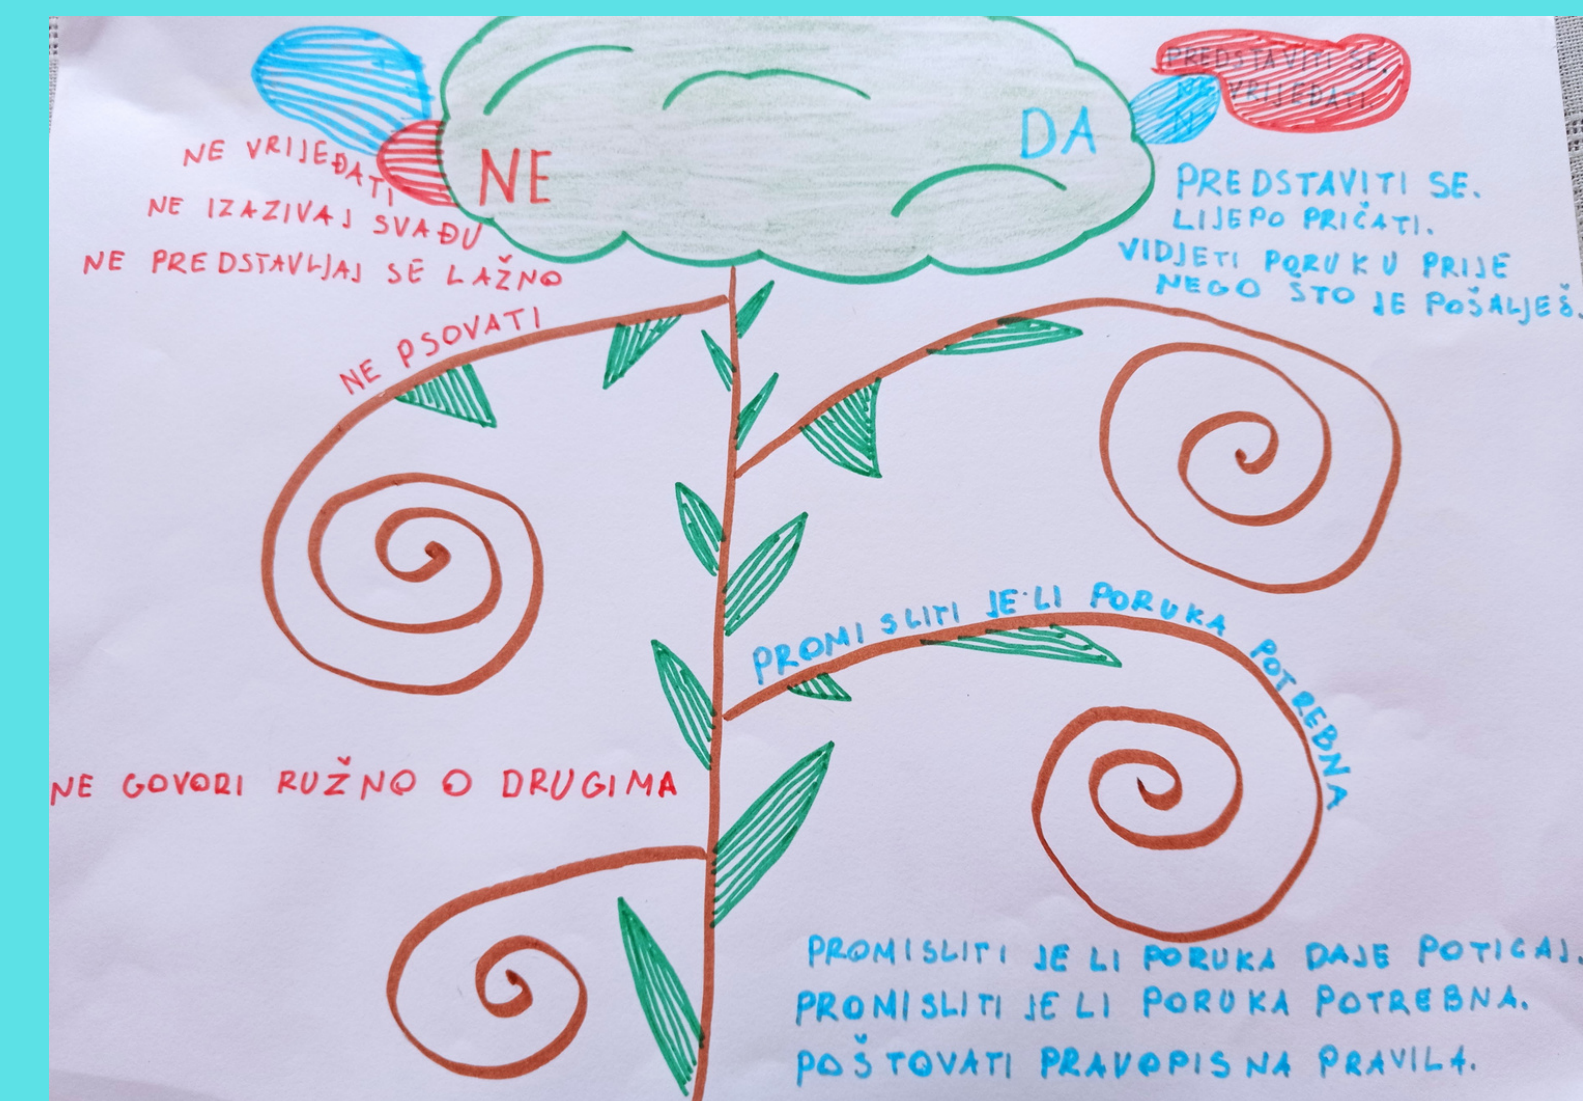 NE
NE VRIJEĐATI
NE IZAZIVAJ SVAĐU
NE PREDSTAVLJAJ SE LAŽNO
NE PSOVATI
NE GOVORI RUŽNO O DRUGIMA
DA
PREDSTAVITI SE.
NE VRIJEĐATI.
PREDSTAVITI SE.
LIJEPO PRIČATI.
VIDJETI PORUKU PRIJE
NEGO ŠTO JE POŠALJEŠ.
PROMISLITI JE LI PORUKA POTREBNA
PROMISLITI JE LI PORUKA DAJE POTICAJ.
PROMISLITI JE LI PORUKA POTREBNA.
POŠTOVATI PRAVOPISNA PRAVILA.